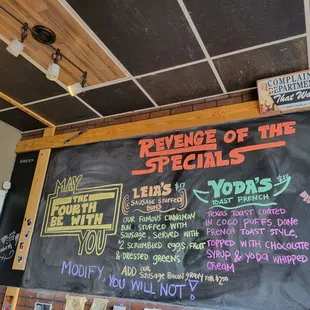 COMPLAINT
DEPARTMENT
That Way
REVENGE OF THE
SPECIALS
MAY
THE
FOURTH
BE WITH
YOU
LEIA'S
SAUSAGE STUFFED
BUNS
OUR FAMOUS CINNAMON
BUN STUFFED WITH
SAUSAGE, SERVED WITH
2 SCRAMBLED EGGS, FRUIT
& DRESSED GREENS
ADD OUR SAUSAGE BACON GRAVY FOR
YODA'S
TOAST FRENCH
TEXAS TOAST COATED
IN COCO PUFFS, DONE
FRENCH TOAST STYLE,
TOPPED WITH CHOCOLATE
SYRUP & YODA WHIPPED
CREAM
MODIFY, YOU WILL NOT!